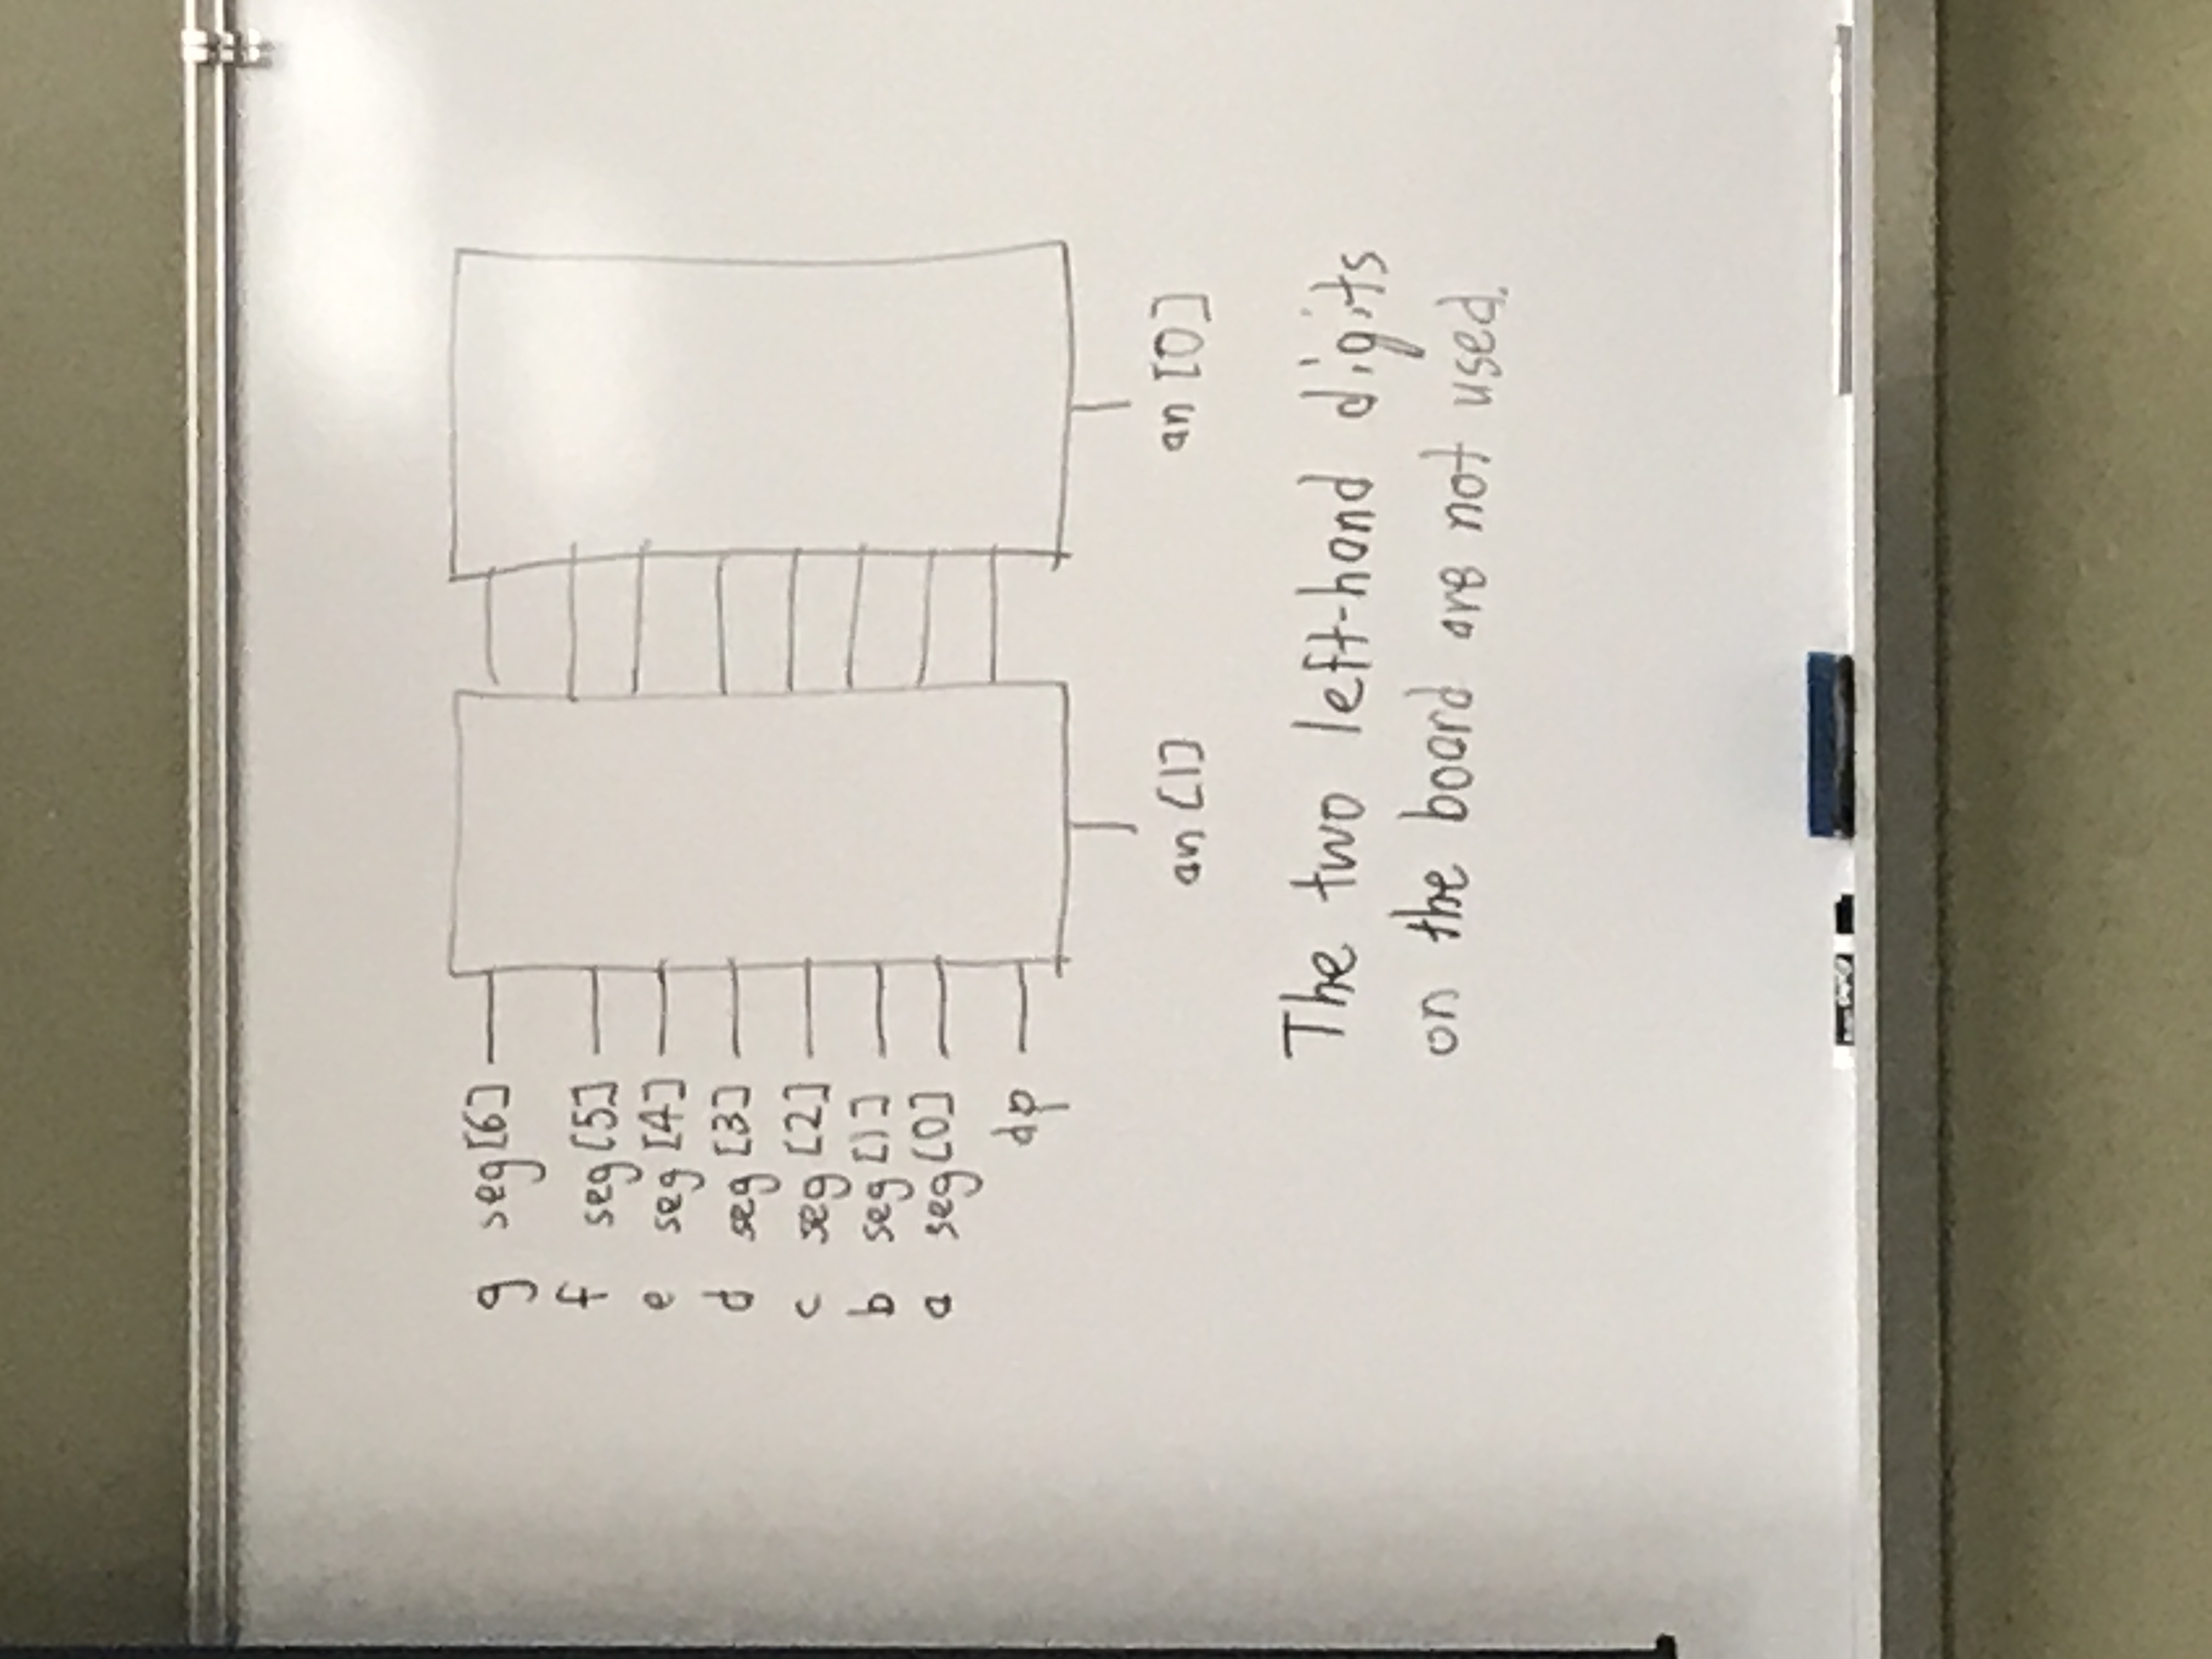 g seg[6]
f seg[5]
e seg[4]
d seg[3]
c seg[2]
b seg[1]
a seg[0]
dp
an[1] an[0]
The two left-hand digits
on the board are not used.